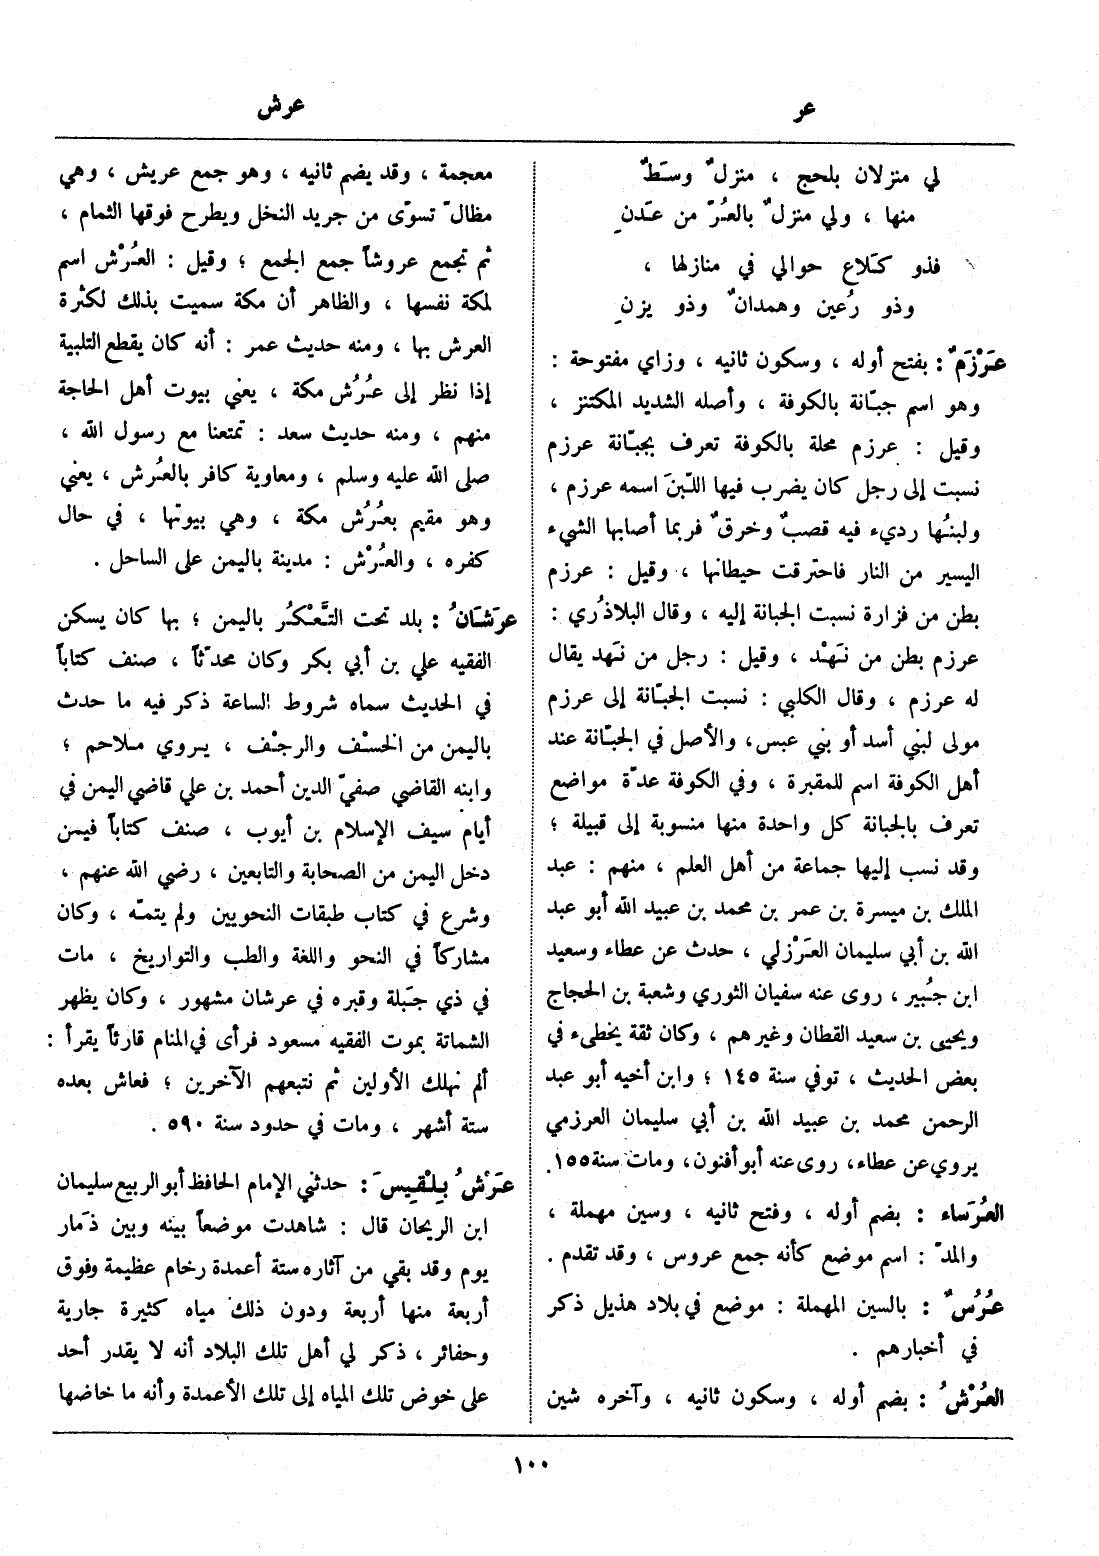 عر
عرش
لي منزلان بلحج ، منزلٌ وسَطٌ
منها ، ولي منزلٌ بالعُرّ من عَدنِ
فذو كَلاع حوالي في منازلها ،
وذو رُعين وهمدانٌ وذو يزنِ
عَرْزَمٌ : بفتح أوله ، وسكون ثانيه ، وزاي مفتوحة :
وهو اسم جبّانة بالكوفة ، وأصله الشديد المكتنز ،
وقيل : عرزم محلة بالكوفة تعرف بجبّانة عرزم
نسبت إلى رجل كان يضرب فيها اللّبنَ اسمه عرزم ،
ولبنُها رديء فيه قصبٌ وخرقٌ فربما أصابها الشيء
اليسير من النار فاحترقت حيطانها ، وقيل : عرزم
بطن من فزارة نسبت الجبانة إليه ، وقال البلاذُري :
عرزم بطن من نَهْد ، وقيل : رجل من نَهد يقال
له عرزم ، وقال الكلبي : نسبت الجبّانة إلى عرزم
مولى لبني أسد أو بني عبس، والأصل في الجبّانة عند
أهل الكوفة اسم للمقبرة ، وفي الكوفة عدّة مواضع
تعرف بالجبانة كل واحدة منها منسوبة إلى قبيلة ؛
وقد نسب إليها جماعة من أهل العلم ، منهم : عبد
الملك بن ميسرة بن عمر بن محمد بن عبيد الله أبو عبد
الله بن أبي سليمان العَرْزلي ، حدث عن عطاء وسعيد
ابن جُبير ، روى عنه سفيان الثوري وشعبة بن الحجاج
ويحيى بن سعيد القطان وغيرهم ، وكان ثقة يخطىء في
بعض الحديث ، توفي سنة ١٤٥ ؛ وابن أخيه أبو عبد
الرحمن محمد بن عبيد الله بن أبي سليمان العرزمي
يروي عن عطاء، روى عنه أبو أفنون، ومات سنة ١٥٥.
العُرَساء : بضم أوله ، وفتح ثانيه ، وسين مهملة ،
والمدّ : اسم موضع كأنه جمع عروس ، وقد تقدم .
عُرُسٌ : بالسين المهملة : موضع في بلاد هذيل ذكر
في أخبارهم .
العُرْشُ : بضم أوله ، وسكون ثانيه ، وآخره شين
معجمة ، وقد يضم ثانيه ، وهو جمع عريش ، وهي
مظالّ تسوّى من جريد النخل ويطرح فوقها الثمام ،
ثم تجمع عروشاً جمع الجمع ؛ وقيل : العُرْش اسم
لمكة نفسها ، والظاهر أن مكة سميت بذلك لكثرة
العرش بها ، ومنه حديث عمر : أنه كان يقطع التلبية
إذا نظر إلى عُرُش مكة ، يعني بيوت أهل الحاجة
منهم ، ومنه حديث سعد : تمتعنا مع رسول الله ،
صلى الله عليه وسلم ، ومعاوية كافر بالعُرش ، يعني
وهو مقيم بعُرُش مكة ، وهي بيوتها ، في حال
كفره ، والعُرْش : مدينة باليمن على الساحل .
عرَشَانُ : بلد تحت التَّعْكُر باليمن ؛ بها كان يسكن
الفقيه علي بن أبي بكر وكان محدّثاً ، صنف كتاباً
في الحديث سماه شروط الساعة ذكر فيه ما حدث
باليمن من الخسْف والرجْف ، يروي ملاحم ؛
وابنه القاضي صفيّ الدين أحمد بن علي قاضي اليمن في
أيام سيف الإسلام بن أيوب ، صنف كتاباً فيمن
دخل اليمن من الصحابة والتابعين ، رضي الله عنهم ،
وشرع في كتاب طبقات النحويين ولم يتمّه ، وكان
مشاركاً في النحو واللغة والطب والتواريخ ، مات
في ذي جَبلة وقبره في عرشان مشهور ، وكان يظهر
الشماتة بموت الفقيه مسعود فرأى في المنام قارئاً يقرأ :
ألم نهلك الأولين ثم نتبعهم الآخرين ؛ فعاش بعده
ستة أشهر ، ومات في حدود سنة ٥٩٠ .
عَرْشُ بِلْقِيسَ : حدثني الإمام الحافظ أبو الربيع سليمان
ابن الريحان قال : شاهدت موضعاً بينه وبين ذَمار
يوم وقد بقي من آثاره ستة أعمدة رخام عظيمة وفوق
أربعة منها أربعة ودون ذلك مياه كثيرة جارية
وحفائر ، ذكر لي أهل تلك البلاد أنه لا يقدر أحد
على خوض تلك المياه إلى تلك الأعمدة وأنه ما خاضها
١٠٠